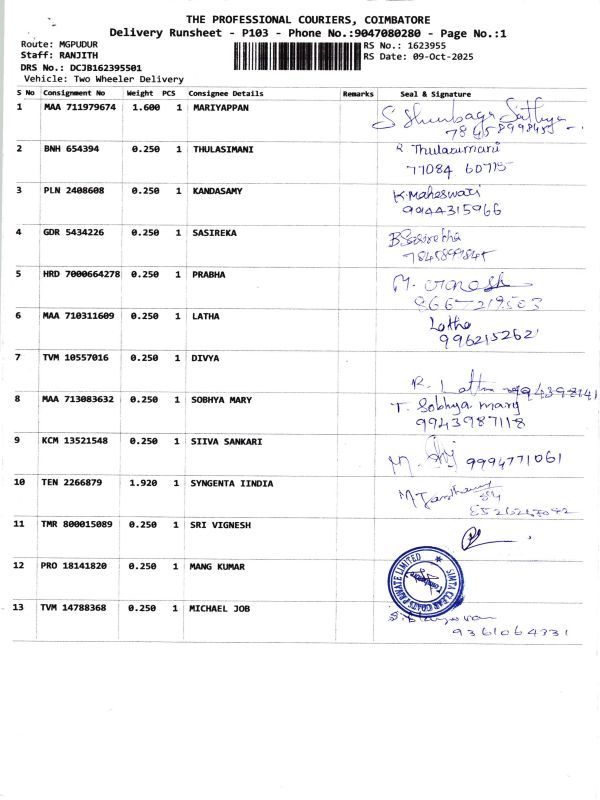 THE PROFESSIONAL COURIERS, COIMBATORE
Delivery Runsheet - P103 - Phone No.:9047080280 - Page No.:1
Route: MGPUDUR
RS No.: 1623955
Staff: RANJITH
RS Date: 09-Oct-2025
DRS No.: DCJB162395501
Vehicle: Two Wheeler Delivery
S No Consignment No Weight PCS Consignee Details Remarks Seal & Signature
1 MAA 711979674 1.600 1 MARIYAPPAN S
2 BNH 654394 0.250 1 THULASIMANI R Thulasimani
77084 60715
3 PLN 2408608 0.250 1 KANDASAMY K.Maheswari
9944315966
4 GDR 5434226 0.250 1 SASIREKA B.Sasirekha
5 HRD 7000664278 0.250 1 PRABHA M.
6 MAA 710311609 0.250 1 LATHA Latha
996215262
7 TVM 10557016 0.250 1 DIVYA
R. Latha
8 MAA 713083632 0.250 1 SOBHYA MARY T. Sobhya mary
9943987118
9 KCM 13521548 0.250 1 SIIVA SANKARI
M. 9994771061
10 TEN 2266879 1.920 1 SYNGENTA IINDIA
11 TMR 800015089 0.250 1 SRI VIGNESH
12 PRO 18141820 0.250 1 MANG KUMAR
SIMTA CLEAR COATS PRIVATE LIMITED
13 TVM 14788368 0.250 1 MICHAEL JOB
9361064331